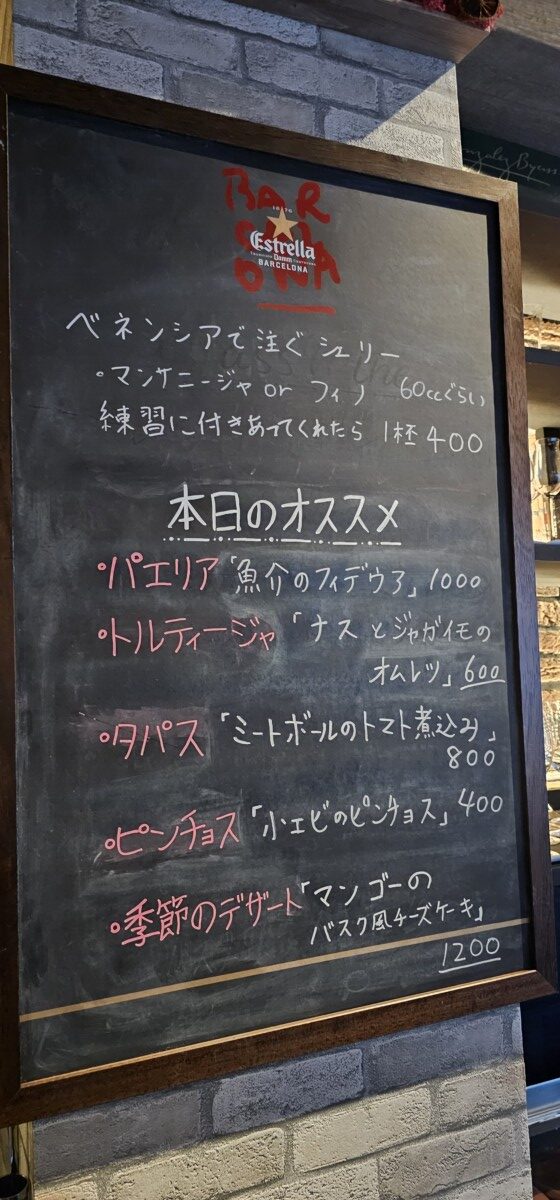 Gonzalez Byass
BAR
CEL
ONA
1876
Estrella
Damm
BARCELONA
ベネンシアで注ぐシェリー
・マンサニージャ or フィノ 60ccぐらい
練習に付きあってくれたら 1杯 400
本日のオススメ
・パエリア「魚介のフィデウア」1000
・トルティージャ「ナスとジャガイモの
オムレツ」600
・タパス「ミートボールのトマト煮込み」
800
・ピンチョス「小エビのピンチョス」400
・季節のデザート「マンゴーの
バスク風チーズケーキ」
1200